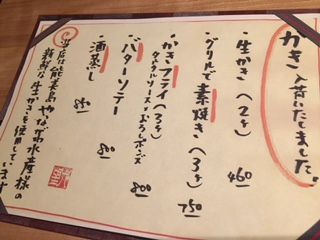 かき入荷いたしました。
生かき(2ヶ) 460
グリルで素焼き(3ヶ) 750
かきフライ(3ヶ) 800
タルタルソースorおろしポンズ
バターソテー 800
酒蒸し 850
当店は能美島やながわ水産様の
新鮮な生かきを使用しています